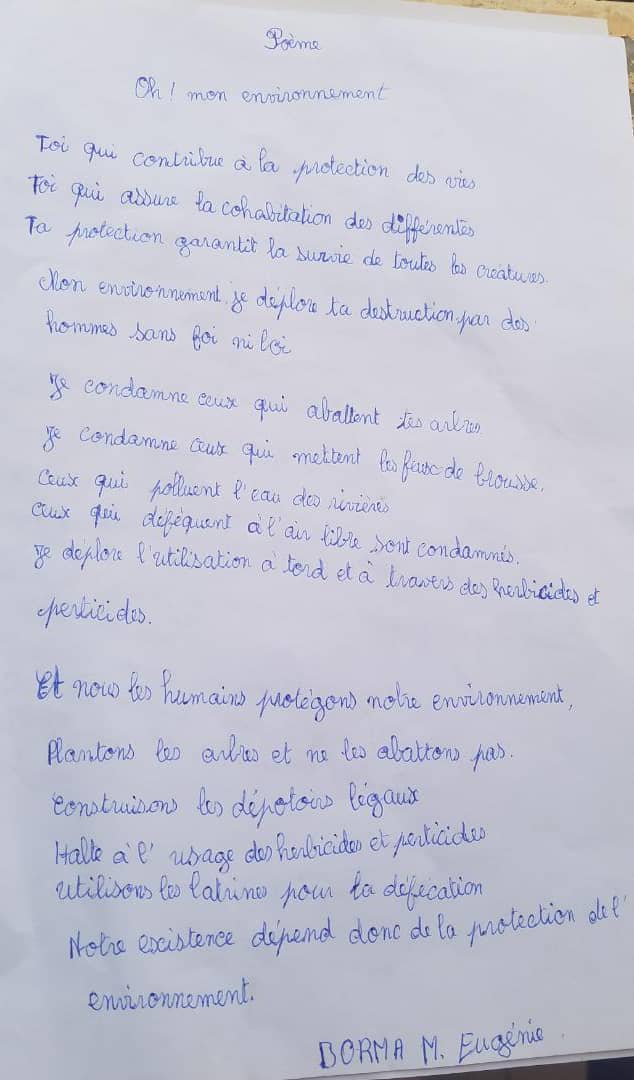 Poème
Oh ! mon environnement
Toi qui contribue à la protection des vies
Toi qui assure la cohabitation des différentes
Ta protection garantit la survie de toutes les créatures.
Mon environnement, je déplore ta destruction par des
hommes sans foi ni loi
Je condamne ceux qui abattent tes arbres
Je condamne ceux qui mettent les feux de brousse.
Ceux qui polluent l'eau des rivières
Ceux qui défèquent à l'air libre sont condamnés.
Je déplore l'utilisation à tord et à travers des herbicides et
perticides.
Et nous les humains protégons notre environnement,
Plantons les arbres et ne les abattons pas.
Construisons les dépotoirs légaux
Halte à l' usage des herbicides et perticides
utilisons les latrines pour la défécation
Notre excistence dépend donc de la protection de l'
environnement.
BORMA M. Eugénie